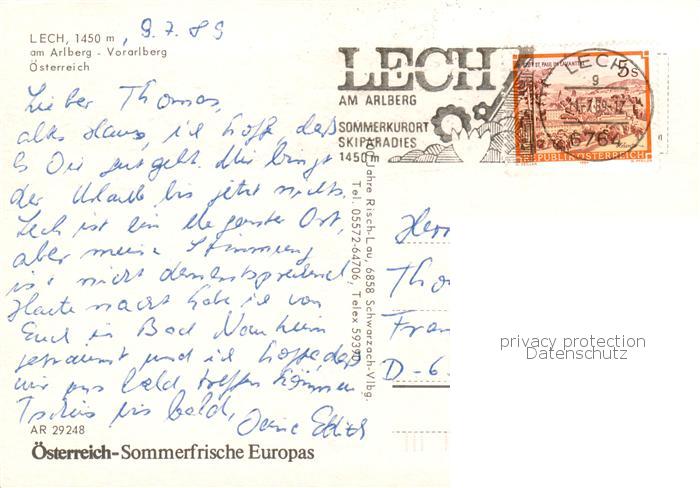 LECH, 1450 m , 9.7.89
am Arlberg - Vorarlberg
Österreich
Lieber Thomas,
altes Haus, ich hoffe, daß
es Dir gut geht. Mir bringt
der Urlaub bis jetzt nichts.
Lech ist ein eleganter Ort,
aber meine Stimmung
ist nicht dementsprechend
Heute nacht habe ich von
Euch in Bad Nauheim
geträumt und ich hoffe, daß
wir uns bald treffen können
Tschüs bis bald,
Edith
AR 29248
Österreich-Sommerfrische Europas
Jahre Risch-Lau, 6858 Schwarzach-Vlbg.
Tel. 05572-64706, Telex 59390
LECH
AM ARLBERG
SOMMERKURORT
SKIPARADIES
1450 m
STIFT ST. PAUL IM LAVANTTAL
5s
REPUBLIK ÖSTERREICH
LECH
9
6764
Herr
Tho
Fran
D-6
privacy protection
Datenschutz